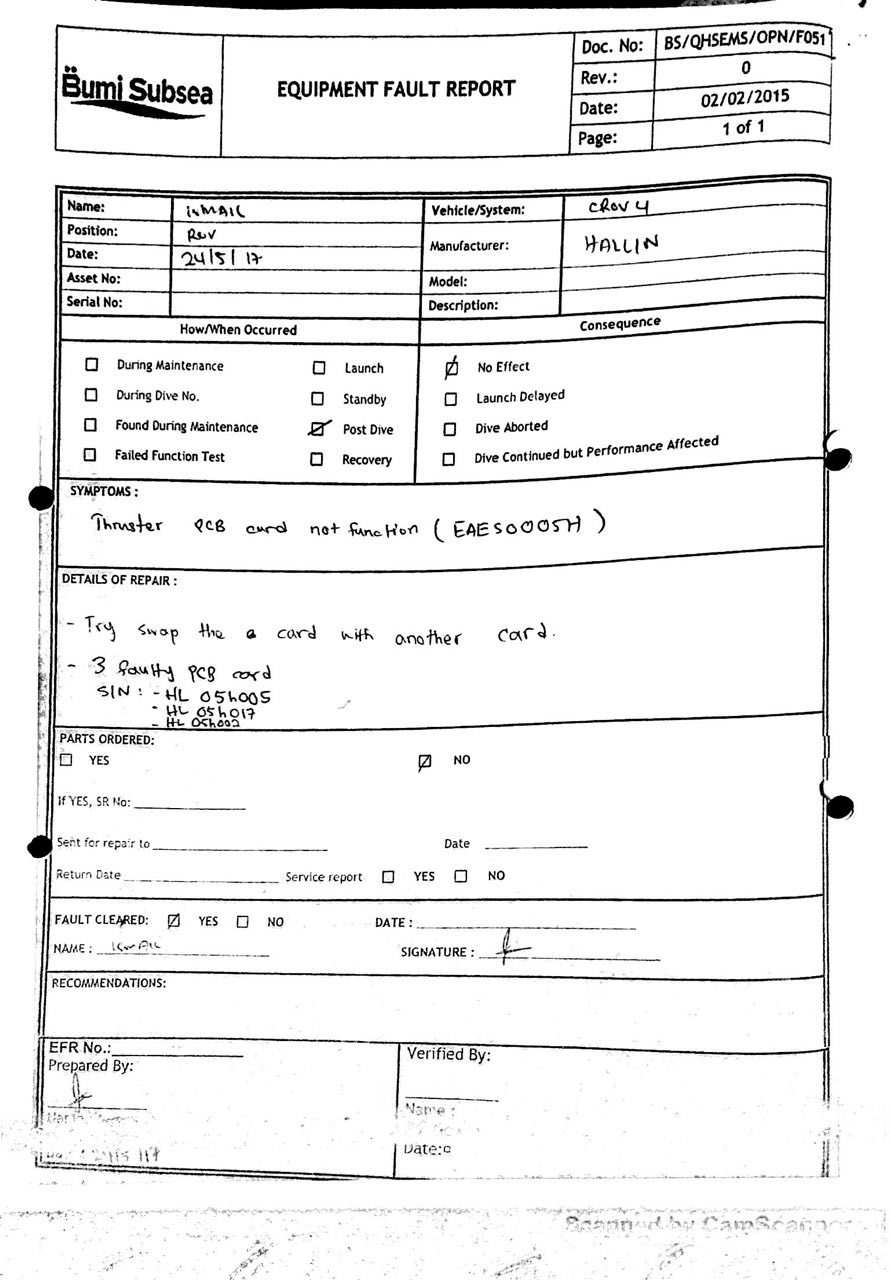 Bumi Subsea
EQUIPMENT FAULT REPORT
Doc. No: BS/QHSEMS/OPN/F051
Rev.: 0
Date: 02/02/2015
Page: 1 of 1
Name: ismAIL Vehicle/System: CROV 4
Position: ROV Manufacturer: HALLIN
Date: 24/5/17
Asset No: Model:
Serial No: Description:
How/When Occurred Consequence
During Maintenance Launch No Effect
During Dive No. Standby Launch Delayed
Found During Maintenance Post Dive Dive Aborted
Failed Function Test Recovery Dive Continued but Performance Affected
SYMPTOMS :
Thruster PCB card not function (EAES0005H)
DETAILS OF REPAIR :
- Try swap the card with another card.
- 3 faulty PCB card
S/N : - HL 05h005
- HL 05h017
- HL 05h002
PARTS ORDERED:
YES NO
If YES, SR No:
Sent for repair to Date
Return Date Service report YES NO
FAULT CLEARED: YES NO DATE :
NAME : ismAIL SIGNATURE :
RECOMMENDATIONS:
EFR No.: Verified By:
Prepared By:
Name :
24/5/17 Date:
Scanned by CamScanner